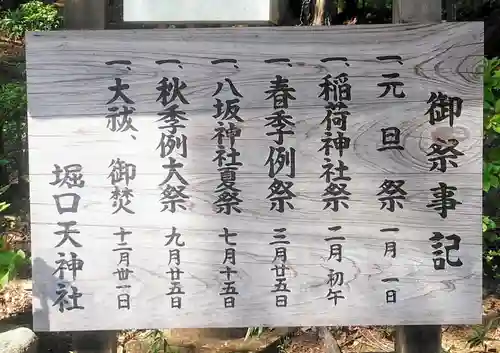 御祭事記
一、元旦祭 一月一日
一、稲荷神社祭 二月初午
一、春季例祭 三月廿五日
一、八坂神社夏祭 七月十五日
一、秋季例大祭 九月廿五日
一、大祓、御焚 十二月卅一日
堀口天神社